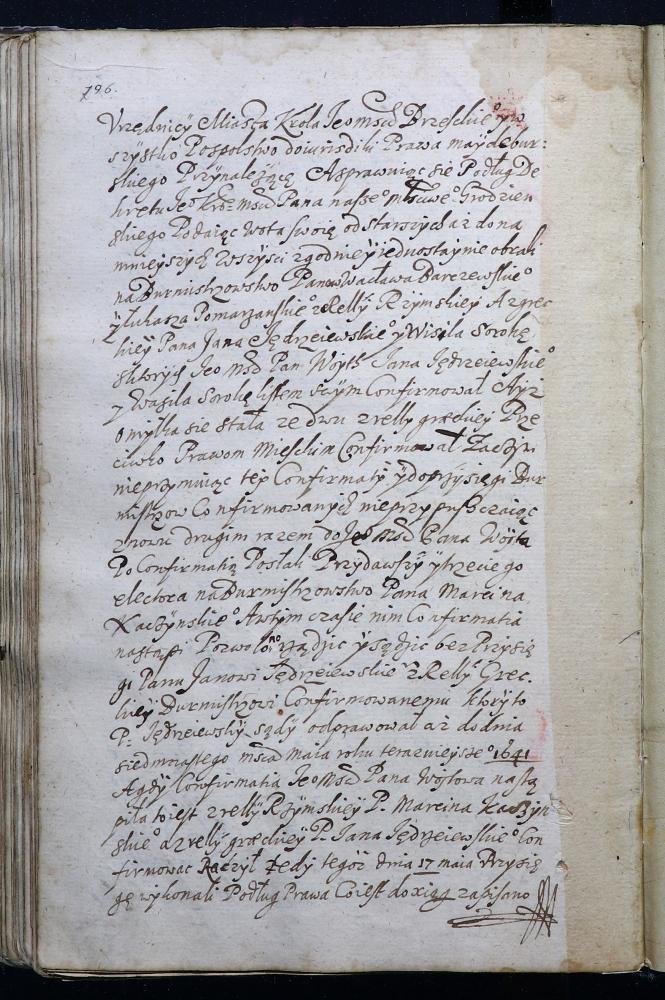 196.
Vrzędnicy Miasta Krola Jeo msci Brzeskieo y w
szystko Pospolstwo do iurisdiki Prawa maydebur-
skiego Przynależące A sprawuiąc się Podług De
kretu Jeo Kro: msci Pana nasseo Grodzien
skiego Podaiąc wota swoie od starszych aż do na
mnieyszych wszysci zgodnie y iednostaynie obrali
na Burmistrzowstwo Panow Wacława Barczewskieo
y Łukasza Pomarzanskieo z Relly Rzymskiey A z grec
kiey Pana Jana Jędrzeiewskieo y Wasila Sorokę
Ktorych Jeo msd Pan Woyt Jana Jędrzeiewskieo
y Wasila Sorokę listem swym Confirmował A yż
omyłka się stała ze dwu z relly græckiey Prze
ciwko Prawom Mieskim Confirmował Zaczym
nie przymuiąc tey Confirmaty y do przysięgi Bur
mistrzow Confirmowanych nie przypusczaiąc
znowu drugim razem do Jeo msd Pana Woyta
Po Confirmatią Posłali Przydawszy y trzeciego
electora na Burmistrzowstwo Pana Marcina
Kaczynskieo A w tym czasie nim Confirmatia
nastąpi Pozwolono rządzic y sędzic bez Przysię
gi Panu Janowi Jędrzeiewskieo z Relly Grec.
kiey Burmistrzowi Confirmowanemu ktory to
P. Jędrzeiewsky sądy odprawował aż do dnia
siedmnastego msca maia roku teraznieyszeo 1641
A gdy Confirmatia Jeo Msd Pana Woytowa nastą
piła to iest z relly Rzymskiey P. Marcina Kaczyn
skieo a z relly græckiey P. Jana Jędrzeiewskieo Con
firmowac Raczył Tedy tegoż dnia 17 maia Przysię
gę wykonali Podług Prawa Co iest do xiąg zapisano